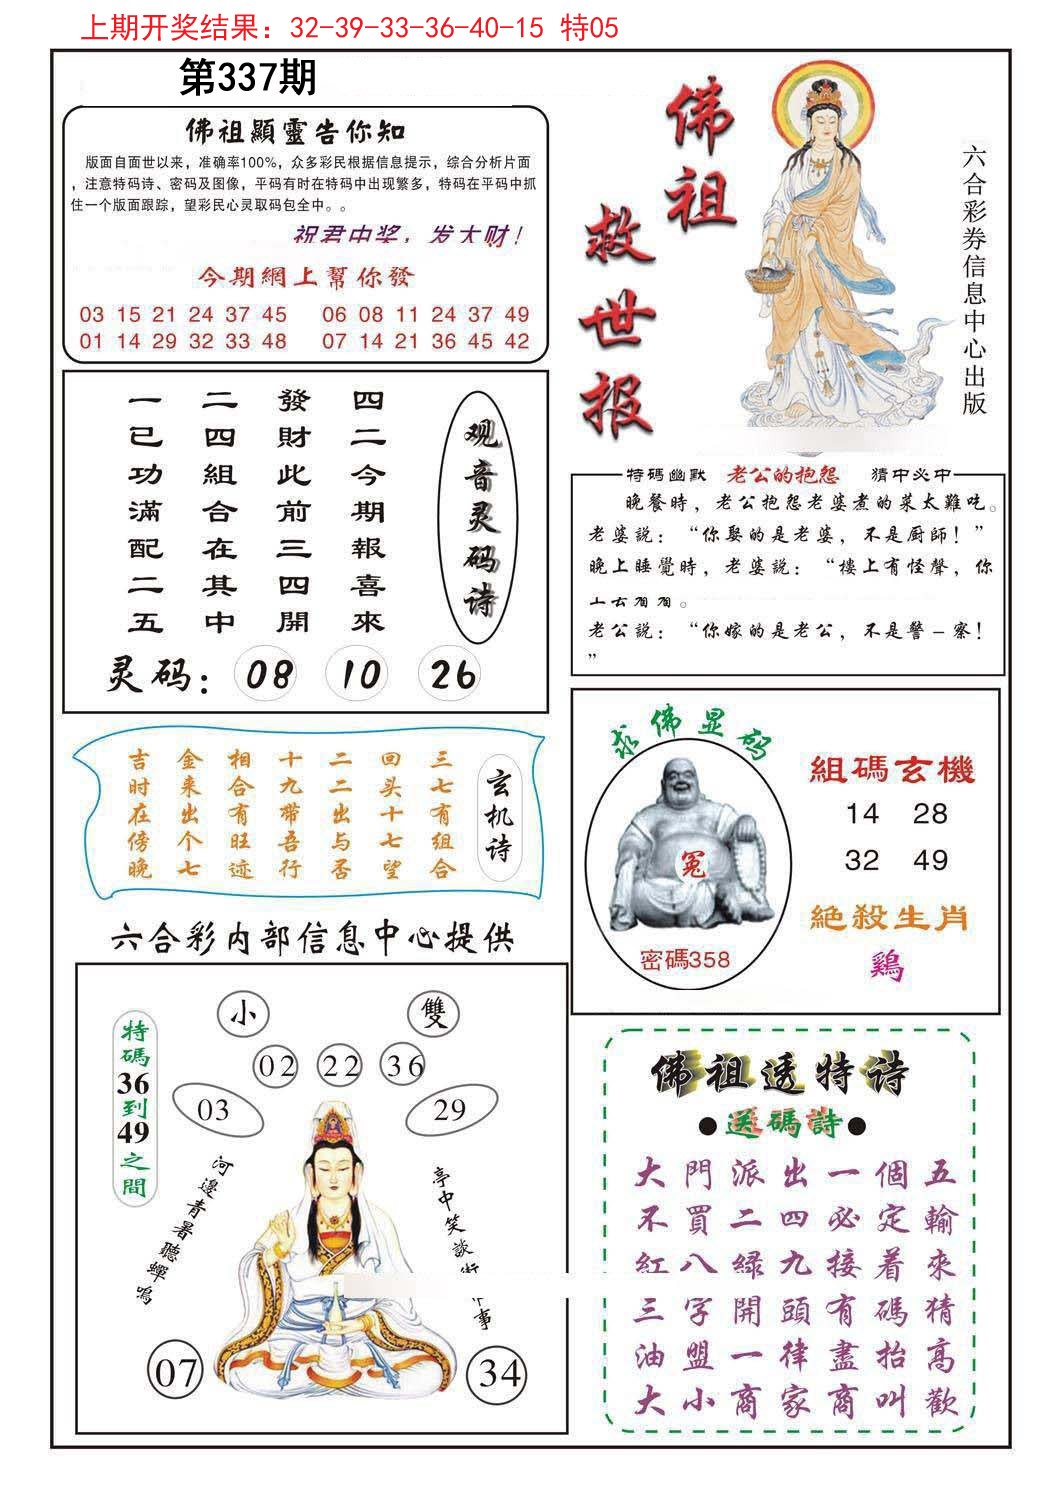 上期开奖结果：32-39-33-36-40-15 特05
第337期
佛祖顯靈告你知
版面自面世以来，准确率100%，众多彩民根据信息提示，综合分析片面
，注意特码诗、密码及图像，平码有时在特码中出现繁多，特码在平码中抓
住一个版面跟踪，望彩民心灵取码包全中。。
祝君中奖，发大财！
今期網上幫你發
03 15 21 24 37 45 06 08 11 24 37 49
01 14 29 32 33 48 07 14 21 36 45 42
佛祖
救世报
六合彩券信息中心出版
一二發四
已四財二
功組此今
滿合前期
配在三報
二其四喜
五中開來
观音灵码诗
灵码：08 10 26
特碼幽默 老公的抱怨 猜中必中
晚餐時，老公抱怨老婆煮的菜太難吃。
老婆説：“你娶的是老婆，不是厨師！”
晚上睡覺時，老婆説：“樓上有怪聲，你
老公説：“你嫁的是老公，不是警－察！
”
吉金相十二回三
时来合九二头七
在出有带出十有
傍个旺吾与七组
晚七迹行否望合
玄机诗
求佛显码
冤
密碼358
組碼玄機
14 28
32 49
絕殺生肖
鷄
六合彩内部信息中心提供
特碼36到49之間
小 雙
02 22 36
03 29
河邊青暑聽蟬鳴
亭中笑談
事
07 34
佛祖透特诗
●送碼詩●
大門派出一個五
不買二四必定輸
紅八緑九接着來
三字開頭有碼猜
油盟一律盡抬高
大小商家商叫歡